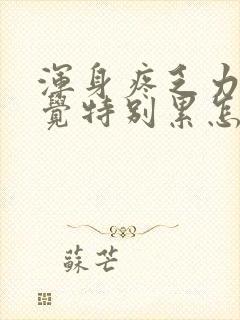 渾身疼乏力
覺特別累怎
蘇芒